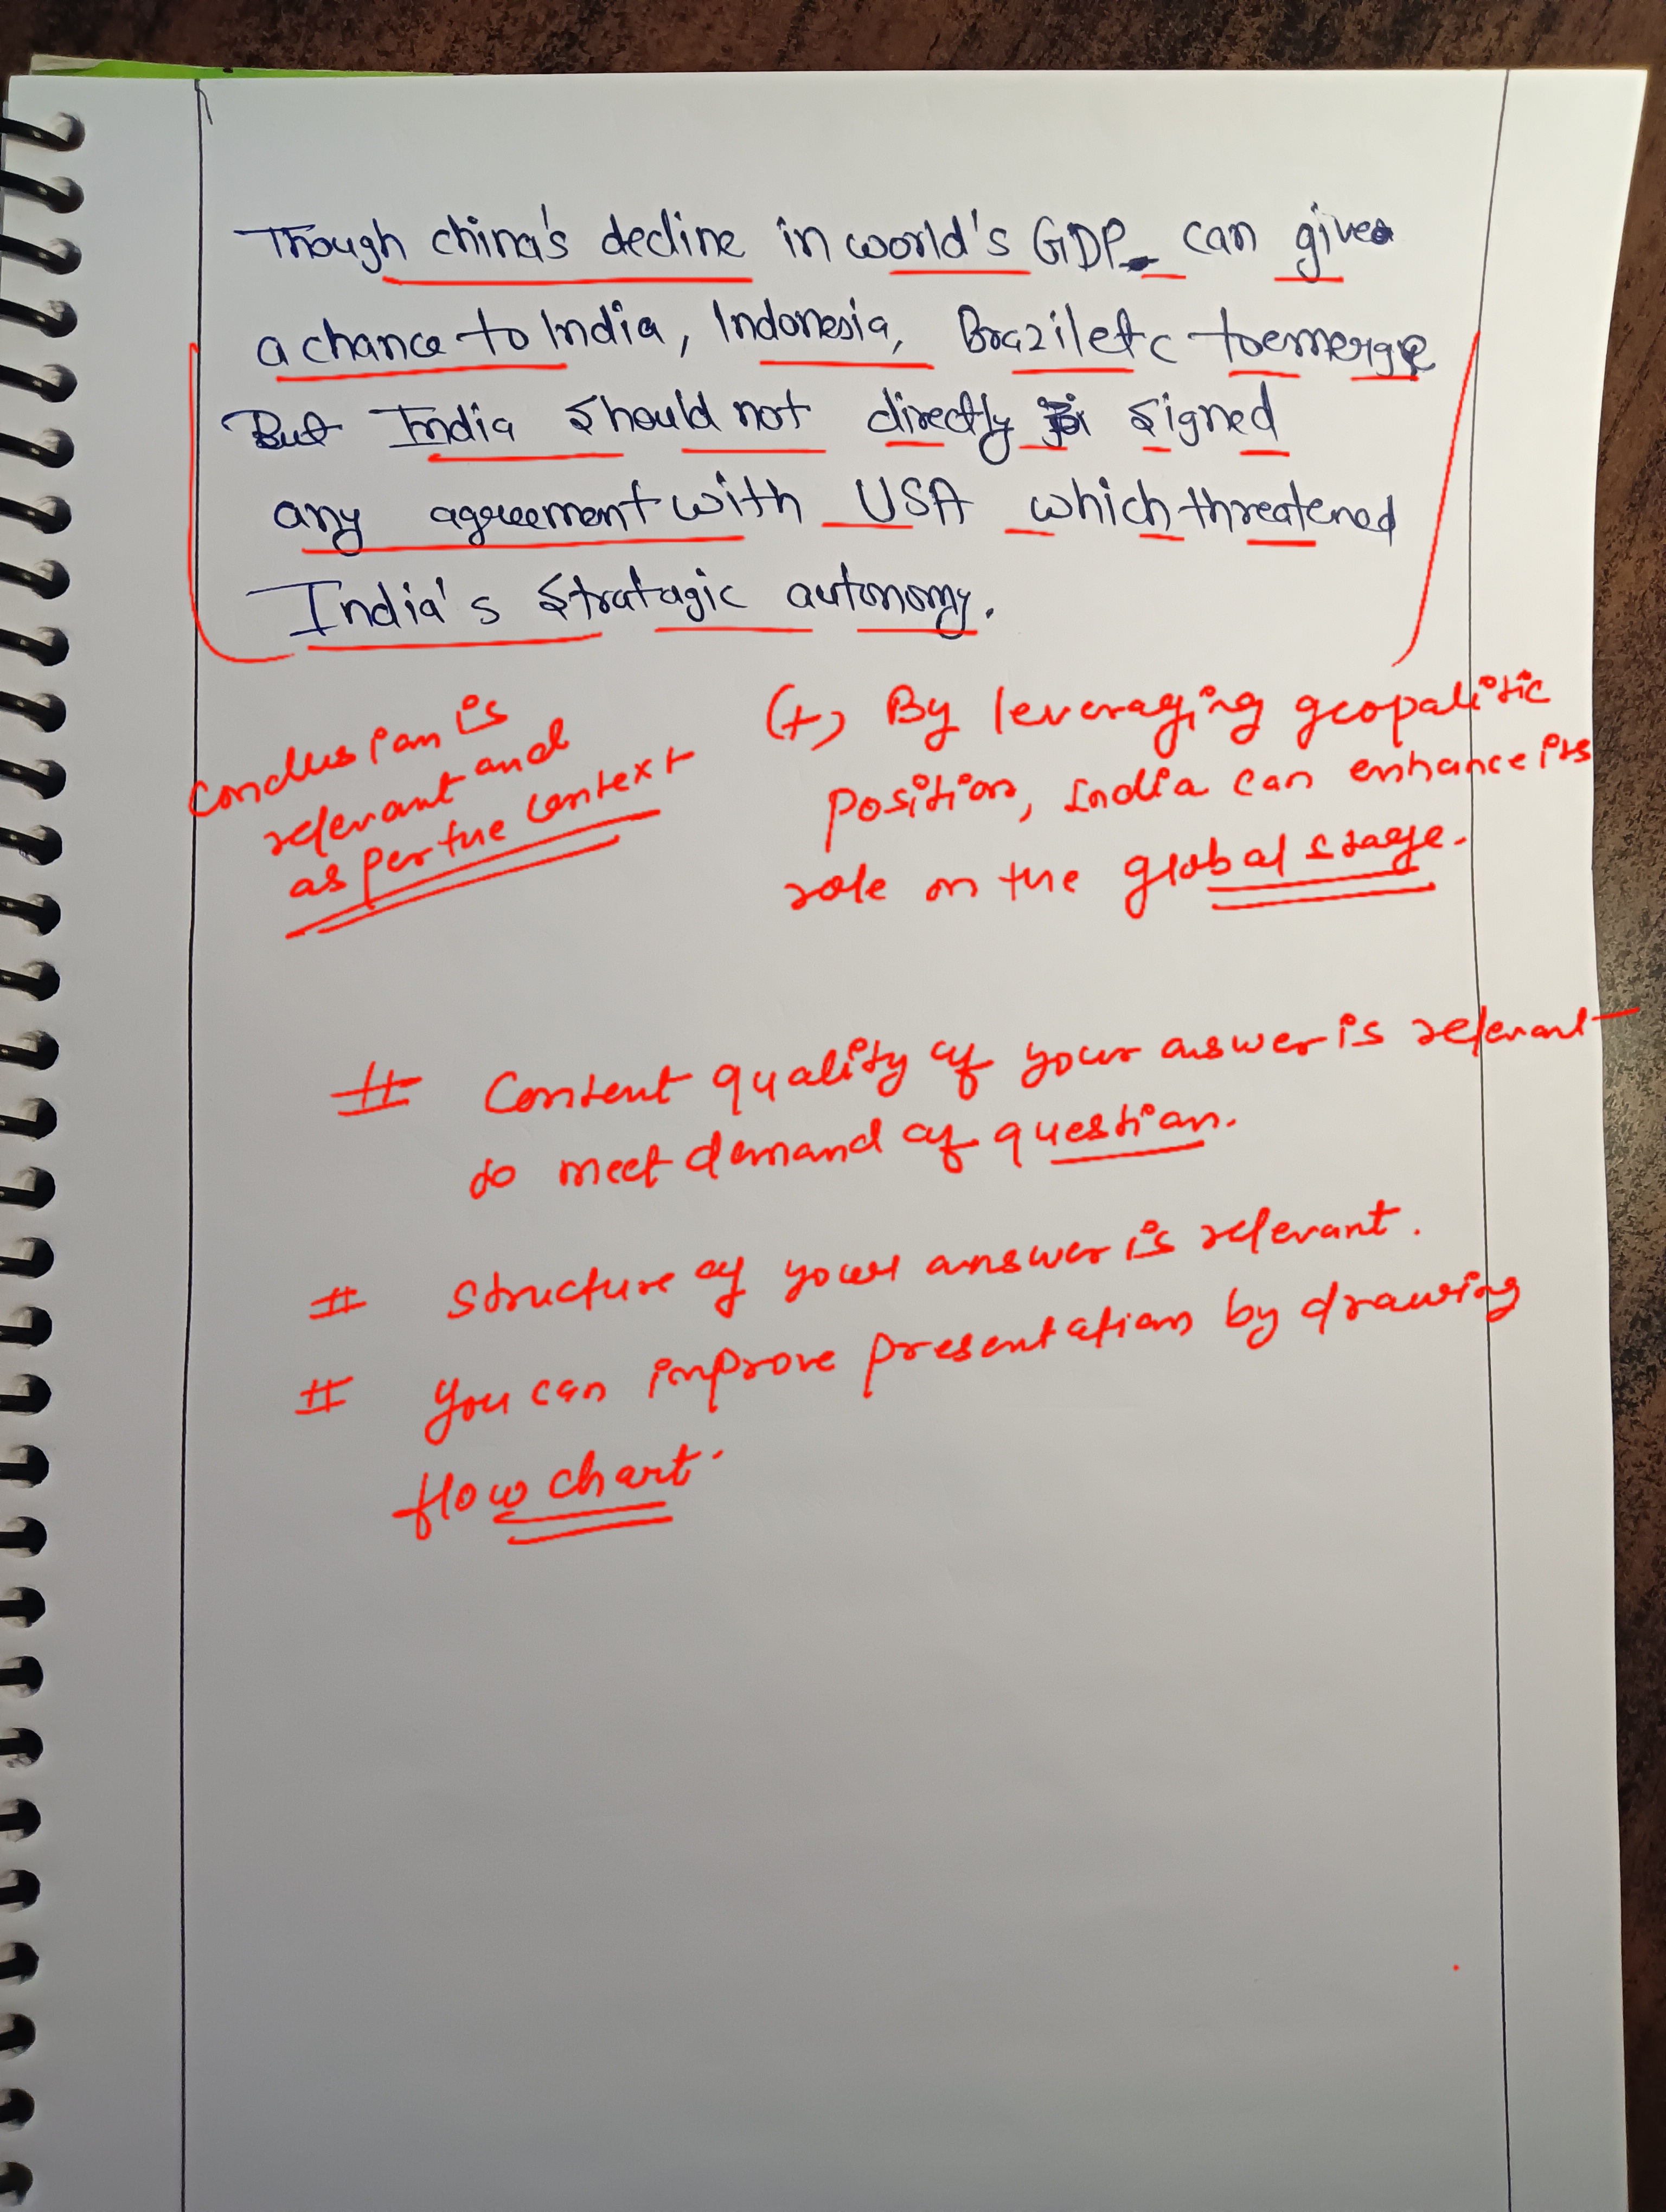 Though china's decline in world's GDP can give
a chance to India, Indonesia, Brazil etc to emerge
But India should not directly signed
any agreement with USA which threatened
India's stratagic autonomy.
Conclusion is
relevant and
as per the context
(+) By leveraging geopalitic
position, India can enhance its
role on the global stage.
# Content quality of your answer is relevant
to meet demand of question.
# Structure of your answer is relevant.
# You can improve presentation by drawing
flow chart.